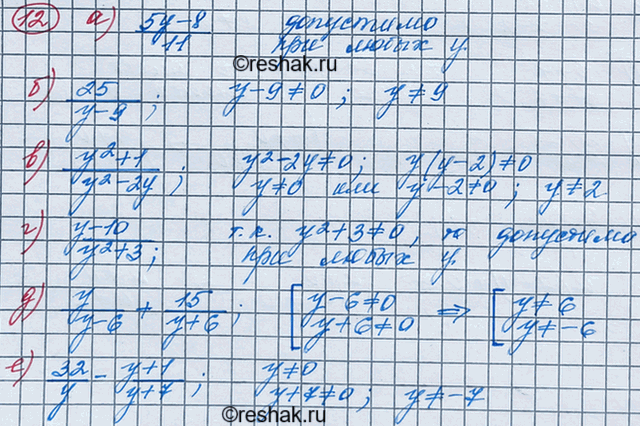 12 а) (5y-8)/11 допустимо
при любых y.
©reshak.ru
б) 25/(y-9); y-9≠0; y≠9
в) (y²+1)/(y²-2y); y²-2y≠0; y(y-2)≠0
y≠0 или y-2≠0; y≠2
г) (y-10)/(y²+3); т.к. y²+3≠0, то допустимо
при любых y.
д) y/(y-6) + 15/(y+6); [y-6≠0 ⇒ [y≠6
y+6≠0 y≠-6
е) 32/y - (y+1)/(y+7); y≠0
y+7≠0; y≠-7
©reshak.ru